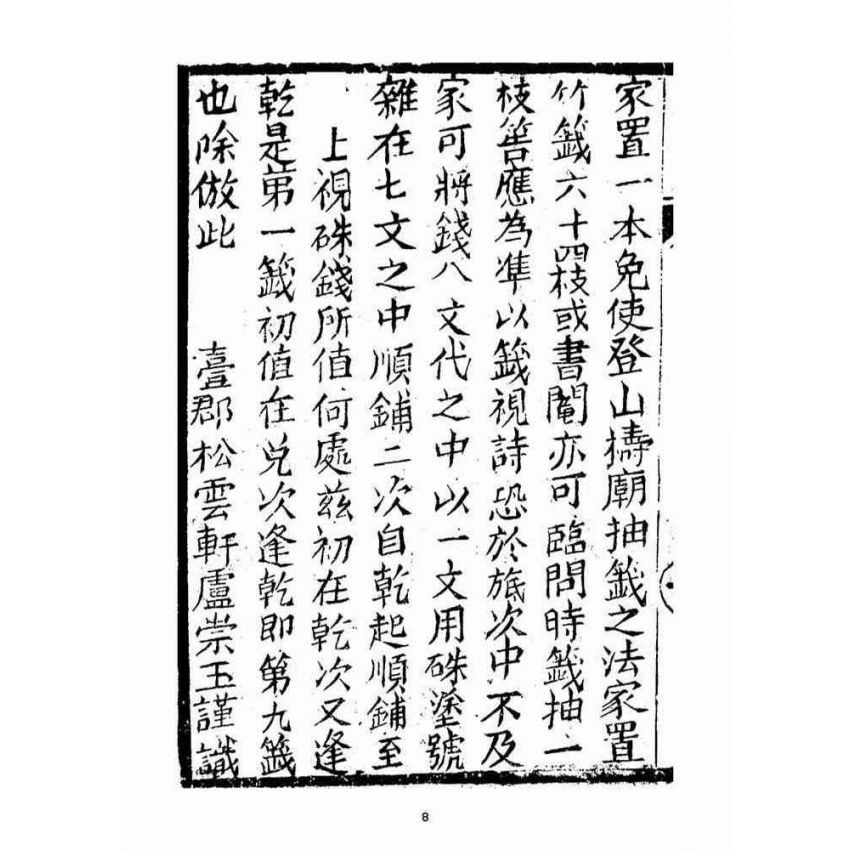 家置一本免使登山擣廟抽籤之法家置
竹籤六十四枝或書䦨亦可臨問時籤抽一
枝筶應為準以籤視詩恐於旅次中不及
家可將錢八文代之中以一文用硃塗號
雜在七文之中順鋪二次自乾起順鋪至
上視硃錢所值何處茲初在乾次又逢
乾是第一籤初值在兌次逢乾即第九籤
也除倣此 臺郡松雲軒盧崇玉謹識
8